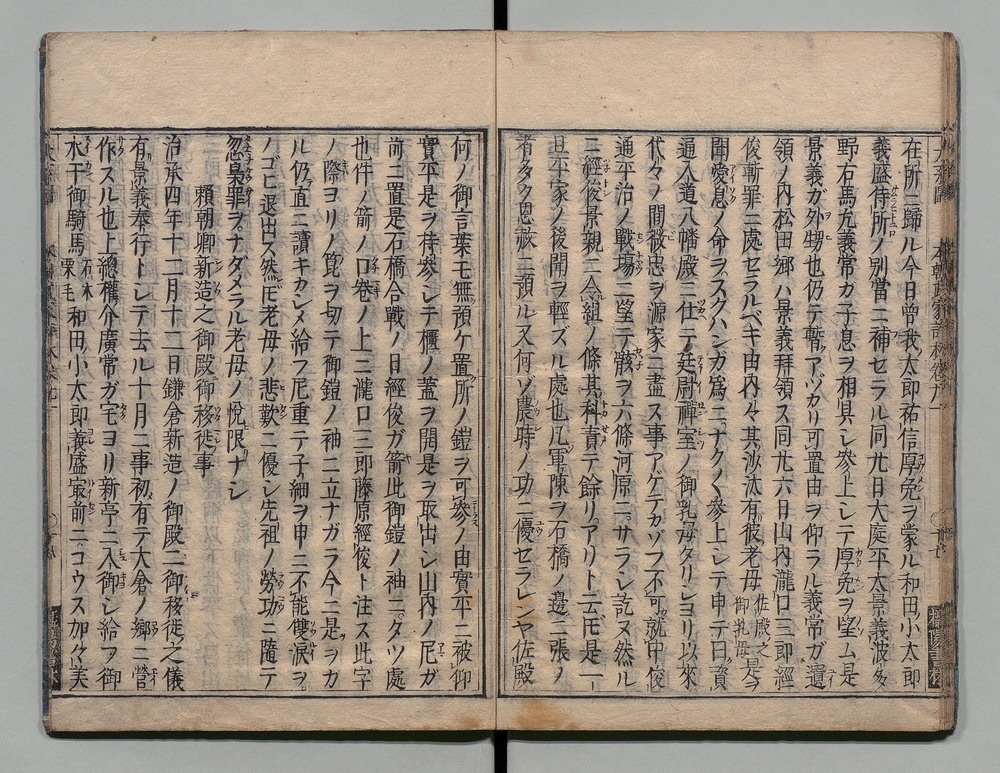 在所ニ歸ル今日曾我太郎祐信厚免ヲ蒙ル和田小太郎
義盛侍所ノ別當ニ補セラル同廿日大庭平太景義波多
野右馬允義常ガ子息ヲ相具シ參上シテ厚免ヲ望ム是
景義ガ外甥也仍テ暫アヅカリ可置由ヲ仰ラル義常ガ遺
領ノ内松田郷ハ景義拜領ス同廿六日山内瀧口三郎經
俊斬罪ニ處セラルベキ由内々其沙汰有彼老母佐殿之是ヲ御乳母
聞愛息ノ命ヲスクハンガ爲ニナク〱參上シテ申テ曰資
通入道八幡殿ニ仕テ廷尉禪室ノ御乳母タリシヨリ以來
代々ノ間忠ヲ源家ニ盡ス事アゲテカゾフ不可就中俊
通平治ノ戰場ニ望テ骸ヲ六條河原ニサラシ訖ヌ然ル
ニ經俊景親ニ組ノ條其科責テ餘リアリト云𪜈是一
旦平家ノ後聞ヲ輕ズル處也凡軍陳ヲ石橋ノ邊ニ張ノ
者多ク恩赦ニ預ル又何ゾ曩時ノ功ニ優セラレンヤ佐殿
何ノ御言葉モ無預ケ置所ノ鎧ヲ可參ノ由實平ニ被仰
實平是ヲ持參シテ櫃ノ蓋ヲ開是ヲ取出シ山内ノ尼ガ
前ニ置是石橋合戰ノ日經俊ガ箭此御鎧ノ袖ニタツ處
也件ノ箭ノ口卷ノ上ニ瀧口三郎藤原經俊ト注ス此字
ノ際ヨリノ箆ヲ切テ御鎧ノ袖ニ立ナガラ今ニ是ヲカ
ル仍直ニ讀キカシメ給フ尼重テ子細ヲ申ニ不能雙淚ヲ
ノゴヒ退出ス然𪜈老母ノ悲歎ニ優シ先祖ノ勞功ニ隨テ
忽梟罪ヲナダメラル老母ノ悅限ナシ
賴朝卿新造之御殿御移徙事
治承四年十二月十二日鎌倉新造ノ御殿ニ御移徙之儀
有景義奉行トシテ去ル十月ニ事初有テ大倉ノ郷ニ營
作スル也上總權介廣常ガ宅ヨリ新亭ニ入御シ給フ御
水干御騎馬石木栗毛和田小太郎義盛最前ニコウス加々美